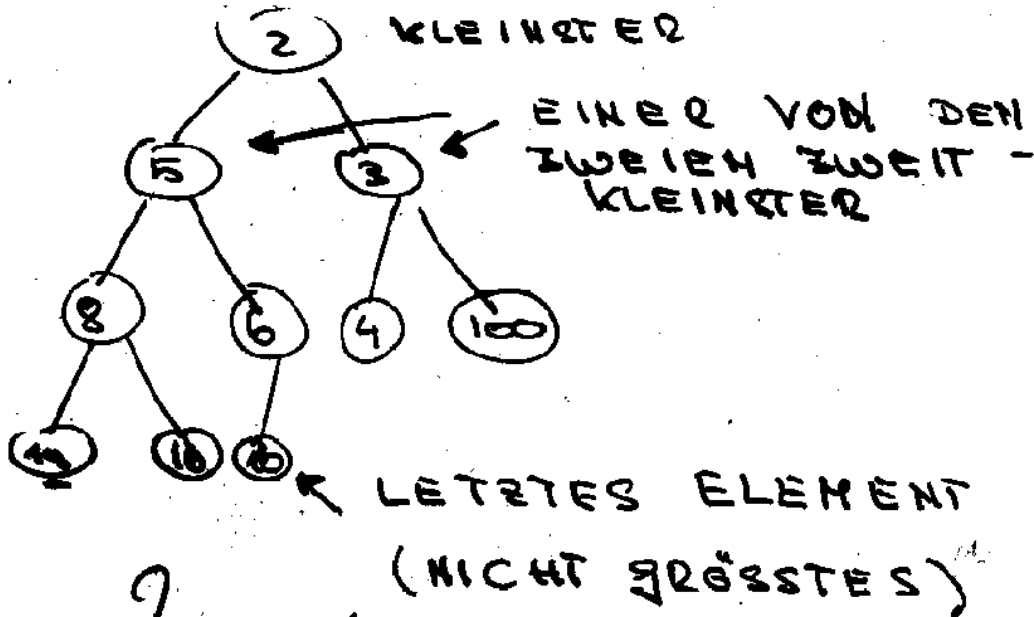 2 KLEINSTER
EINER VON DEN
5 3 ZWEIEN ZWEIT-
KLEINSTER
8 6 4 100
10
LETZTES ELEMENT
(NICHT GRÖSSTES)